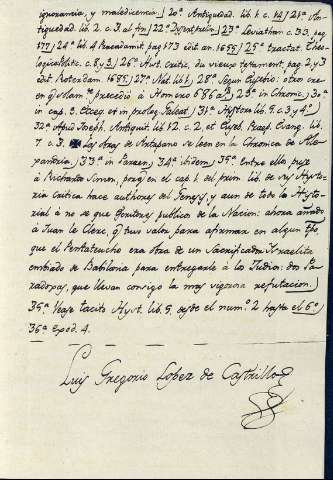 ignorancia, y maledicencia.] 20ª Antiquidad. lib. 1. c. 12] 21ª An-
tiguedad. lib. 2. c. 3. al fin] 22ª Dissert. prelin.] 23ª Leviathan c. 33. pag.
177] 24ª lib. 4 Preadamit. pag 173 edit. an. 1655] 25ª tractat. Theo-
logico Politic. c. 8, y 3] 26ª Hist. critic. du vieux testament; pag 2, y 3
edit. Roterdam. 1685] 27ª Ibid. lib. 1] 28ª Segun Eusebio: otros cre-
en q solam.te precedió á Homero 686 aª] 29ª in Chronic.] 30ª
in cap. 3. Ezeq. et in prolog. Galeat.] 31ª Hystora lib. 5. c. 3, y 4]
32ª Apud Joseph. Antiquit. lib. 12. c. 2, et Euseb. Praep. Evang. lib.
7. c. 3. Las obras de Antapano se leen en la Chronica de Ale-
xandria] 33ª in Parxen] 34ª ibidem] 35ª Entre ellos puse
á Richardo Simon, porq en el cap. 1. del prim. lib. de su Hysto-
ria critica hace authores del Genesis, y aun de todo la Hysto-
rial a no se que Escritores publicos de la Nacion: ahora añado
a Juan le Clerc, q tuvo valor para afirmar en algun tpo,
que el Pentateucho era obra de un Sacrificador Israelita
embiado de Babilonia para entregarle á los Judios: dos Pa-
radoxas, que llevan consigo la mas vigorosa refutacion.]
35ª Vease tacito Hyst. lib. 5, desde el num.º 2 hasta el 6º]
36ª Exod. 4.
Luis Gregorio Lopez de Castrillo